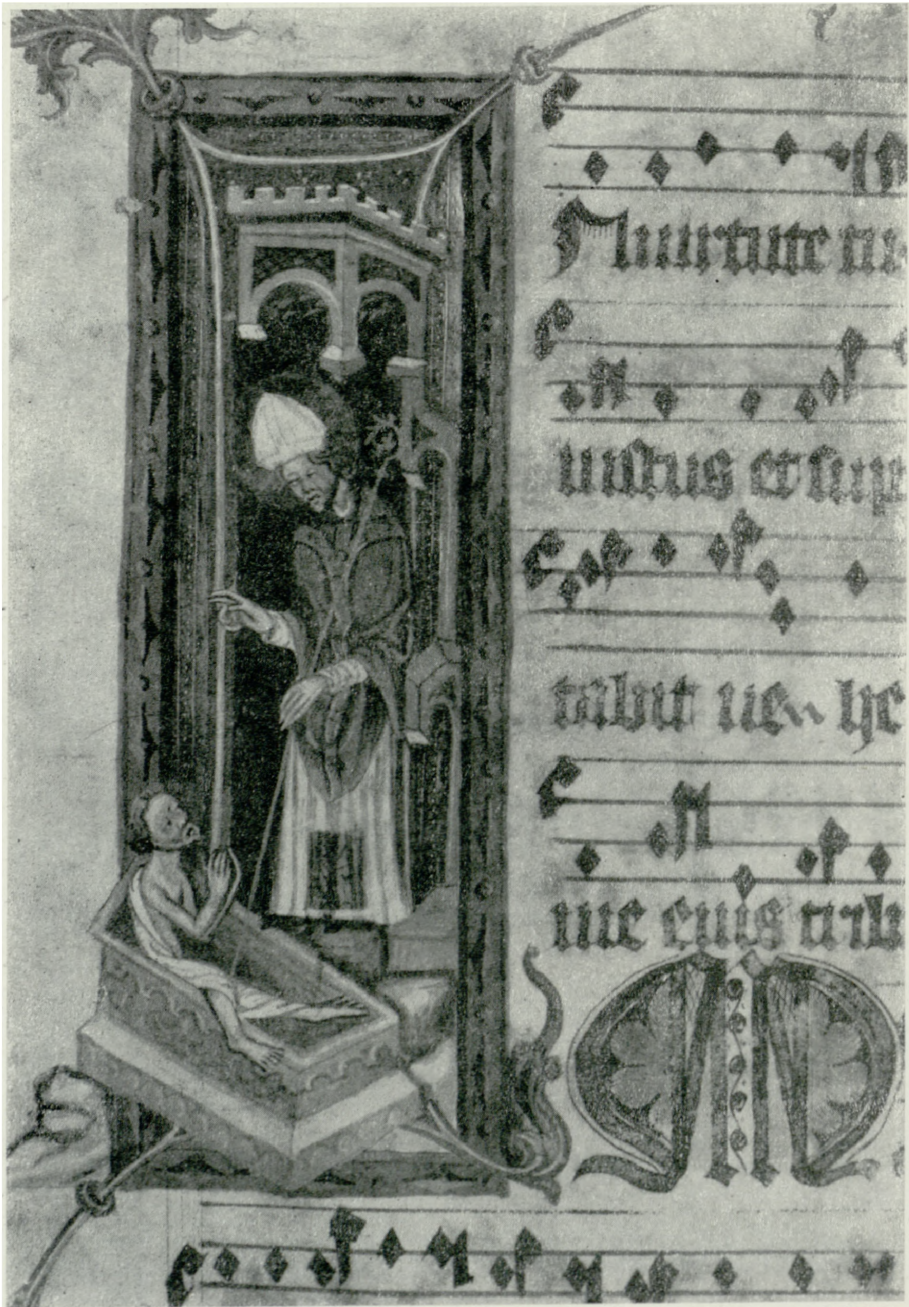 N uirtute tu
iustus et sup
tabit ue he
me eius tribu
M